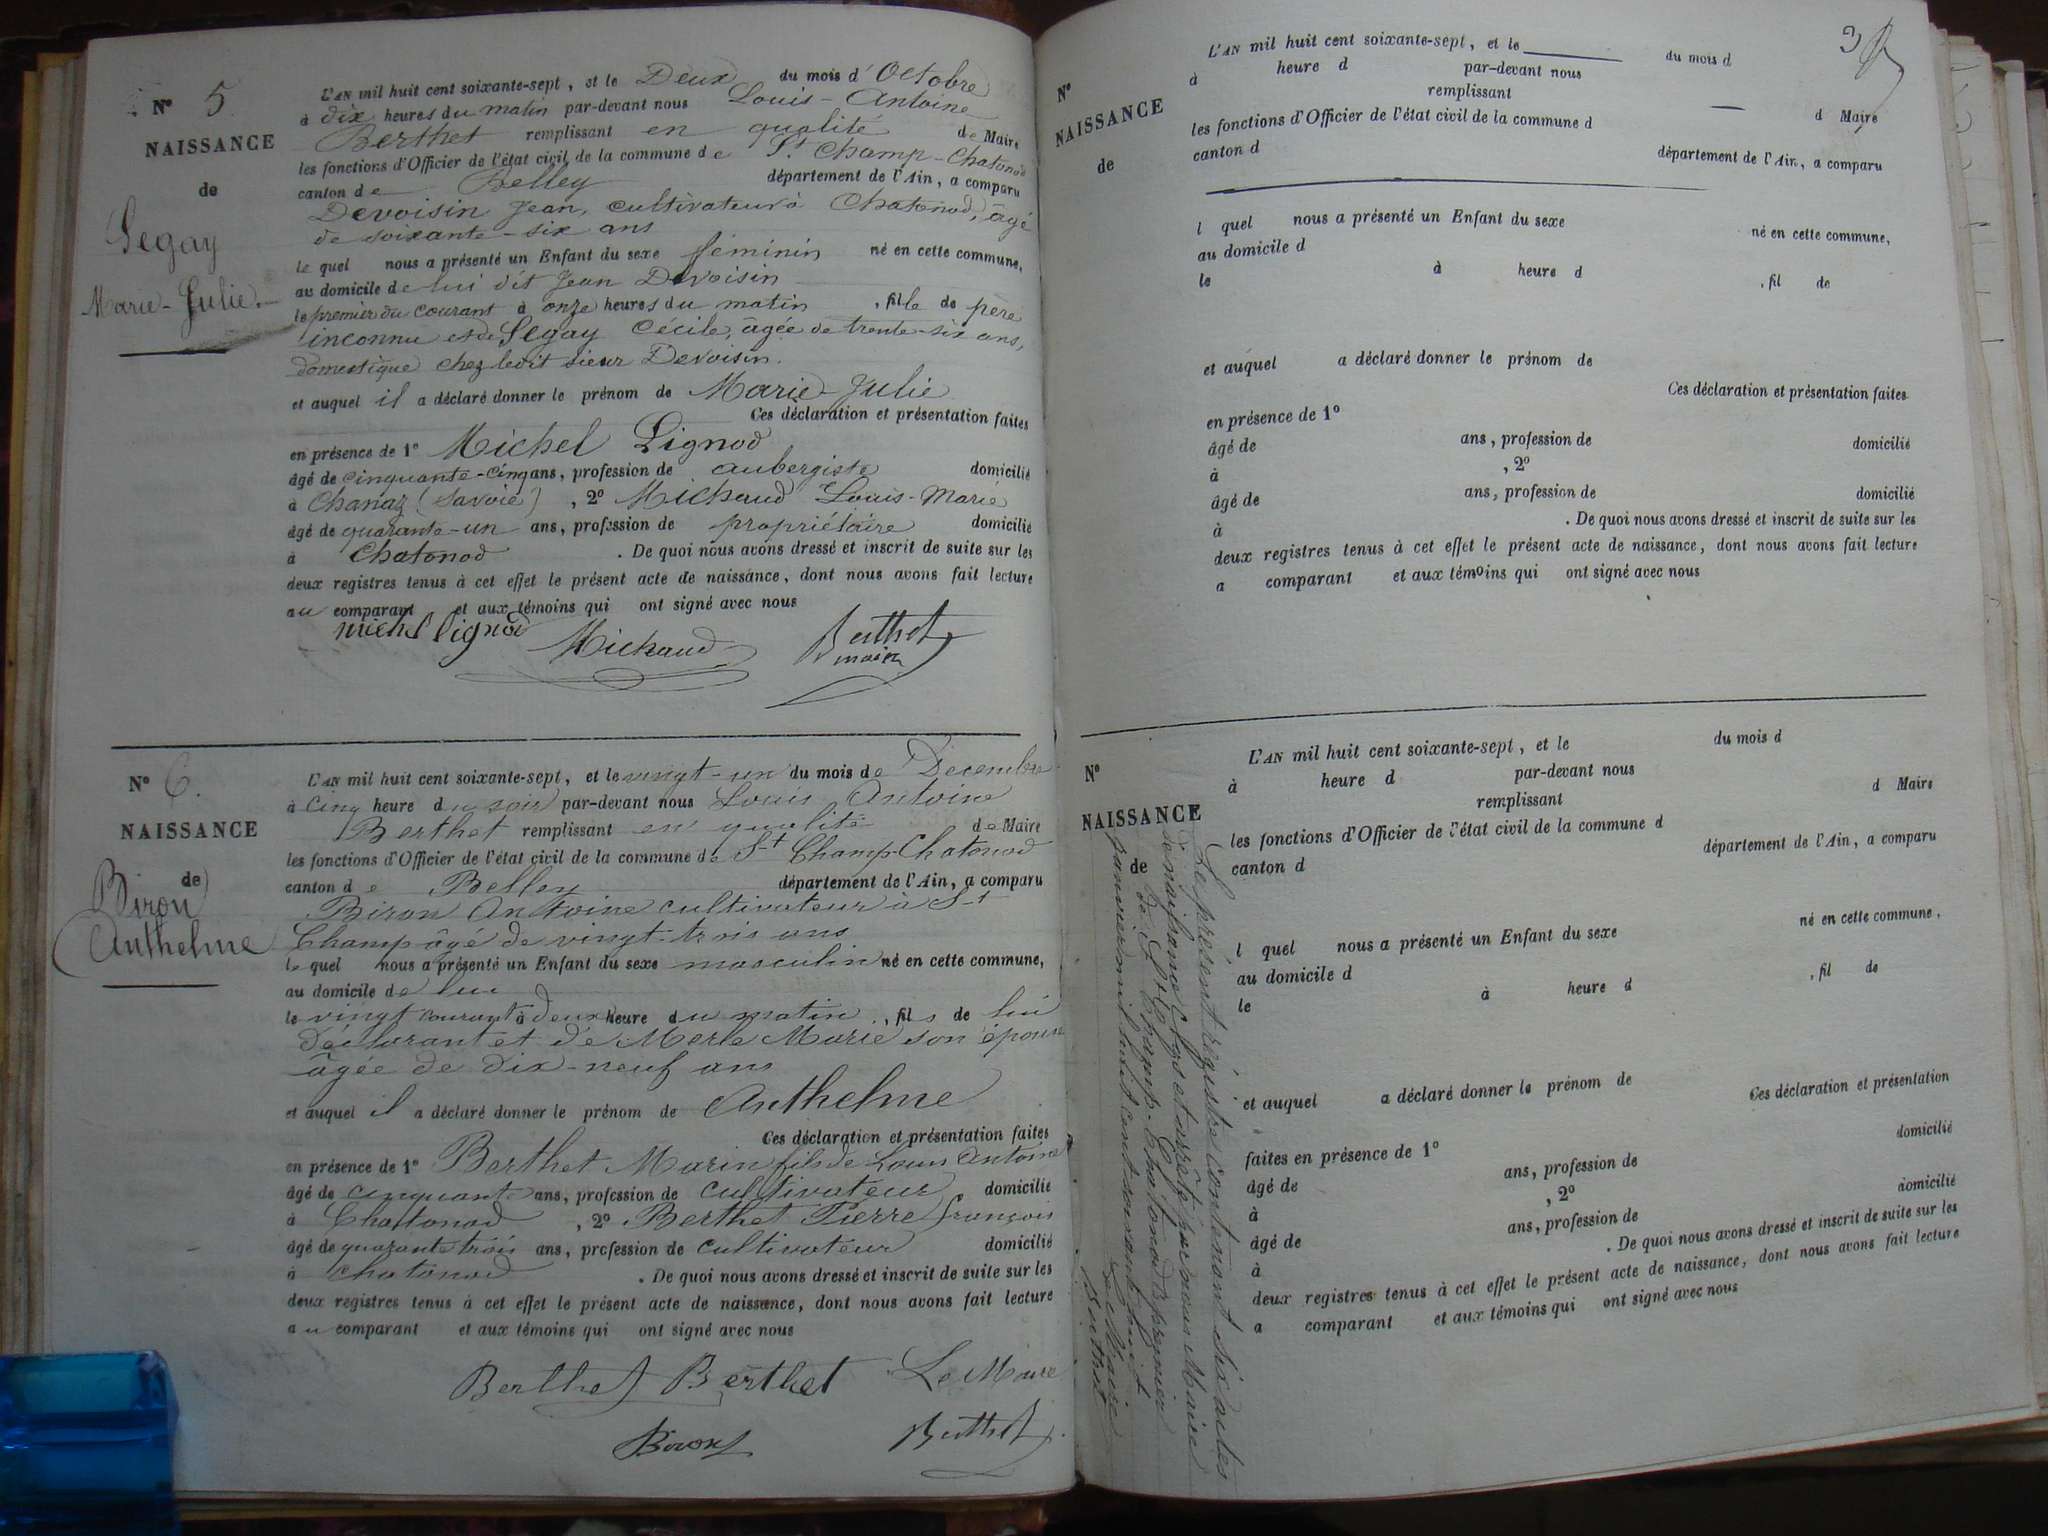 N° 5.
NAISSANCE
de
Segay
Marie-Julie.
L'AN mil huit cent soixante-sept, et le Deux du mois d'Octobre
à dix heures du matin par-devant nous Louis-Antoine
Berthet remplissant en qualité de Maire
les fonctions d'Officier de l'état civil de la commune de St Champ-Chatonod
canton de Belley département de l'Ain, a comparu
Devoisin Jean, cultivateur à Chatonod, âgé
de soixante-six ans
le quel nous a présenté un Enfant du sexe féminin né en cette commune,
au domicile de lui dit Jean Devoisin
le premier du courant à onze heures du matin, fille de père
inconnu et de Segay Cécile, âgée de trente-six ans,
domestique chez ledit sieur Devoisin.
et auquel il a déclaré donner le prénom de Marie-Julie
Ces déclaration et présentation faites
en présence de 1° Michel Lignod
âgé de cinquante-cinq ans, profession de aubergiste domicilié
à Chanaz (Savoie), 2° Michaud Louis-Marie
âgé de quarante-un ans, profession de propriétaire domicilié
à Chatonod. De quoi nous avons dressé et inscrit de suite sur les
deux registres tenus à cet effet le présent acte de naissance, dont nous avons fait lecture
au comparant et aux témoins qui ont signé avec nous
michel lignod Michaud Berthet
maire
N° 6.
NAISSANCE
de
Biron
Anthelme
L'AN mil huit cent soixante-sept, et le vingt-un du mois de Decembre
à cinq heure du soir par-devant nous Louis Antoine
Berthet remplissant en qualité de Maire
les fonctions d'Officier de l'état civil de la commune de St Champ Chatonod
canton de Belley département de l'Ain, a comparu
Biron Antoine cultivateur à St
Champ âgé de vingt-trois ans
le quel nous a présenté un Enfant du sexe masculin né en cette commune,
au domicile de lui
le vingt courant à deux heure du matin, fils de lui
déclarant et de Merle Marie son épouse
âgée de dix-neuf ans
et auquel il a déclaré donner le prénom de Anthelme
Ces déclaration et présentation faites
en présence de 1° Berthet Marin fils de Louis Antoine
âgé de cinquante ans, profession de cultivateur domicilié
à Chatonod, 2° Berthet Pierre françois
âgé de quarante trois ans, profession de cultivateur domicilié
à chatonod. De quoi nous avons dressé et inscrit de suite sur les
deux registres tenus à cet effet le présent acte de naissance, dont nous avons fait lecture
au comparant et aux témoins qui ont signé avec nous
Berthet Berthet Le Maire
Biron Berthet
3
N°
NAISSANCE
de
L'AN mil huit cent soixante-sept, et le du mois d
à heure d par-devant nous
remplissant d Maire
les fonctions d'Officier de l'état civil de la commune d
canton d département de l'Ain, a comparu
l quel nous a présenté un Enfant du sexe né en cette commune,
au domicile d
le à heure d , fil de
et auquel a déclaré donner le prénom de
Ces déclaration et présentation faites
en présence de 1°
âgé de ans, profession de domicilié
à , 2°
âgé de ans, profession de domicilié
à . De quoi nous avons dressé et inscrit de suite sur les
deux registres tenus à cet effet le présent acte de naissance, dont nous avons fait lecture
a comparant et aux témoins qui ont signé avec nous
N°
NAISSANCE
de
L'AN mil huit cent soixante-sept, et le du mois d
à heure d par-devant nous
remplissant d Maire
les fonctions d'Officier de l'état civil de la commune d
canton d département de l'Ain, a comparu
l quel nous a présenté un Enfant du sexe né en cette commune,
au domicile d
le à heure d , fil de
et auquel a déclaré donner le prénom de
Ces déclaration et présentation
faites en présence de 1° domicilié
âgé de ans, profession de
à , 2° domicilié
âgé de ans, profession de
à . De quoi nous avons dressé et inscrit de suite sur les
deux registres tenus à cet effet le présent acte de naissance, dont nous avons fait lecture
a comparant et aux témoins qui ont signé avec nous
Le présent registre contenant six actes
de naissance Clos et arrêté par nous Maire
de St Champ-Chatonod le premier
janvier mil huit cent soixante huit
Le Maire
Berthet